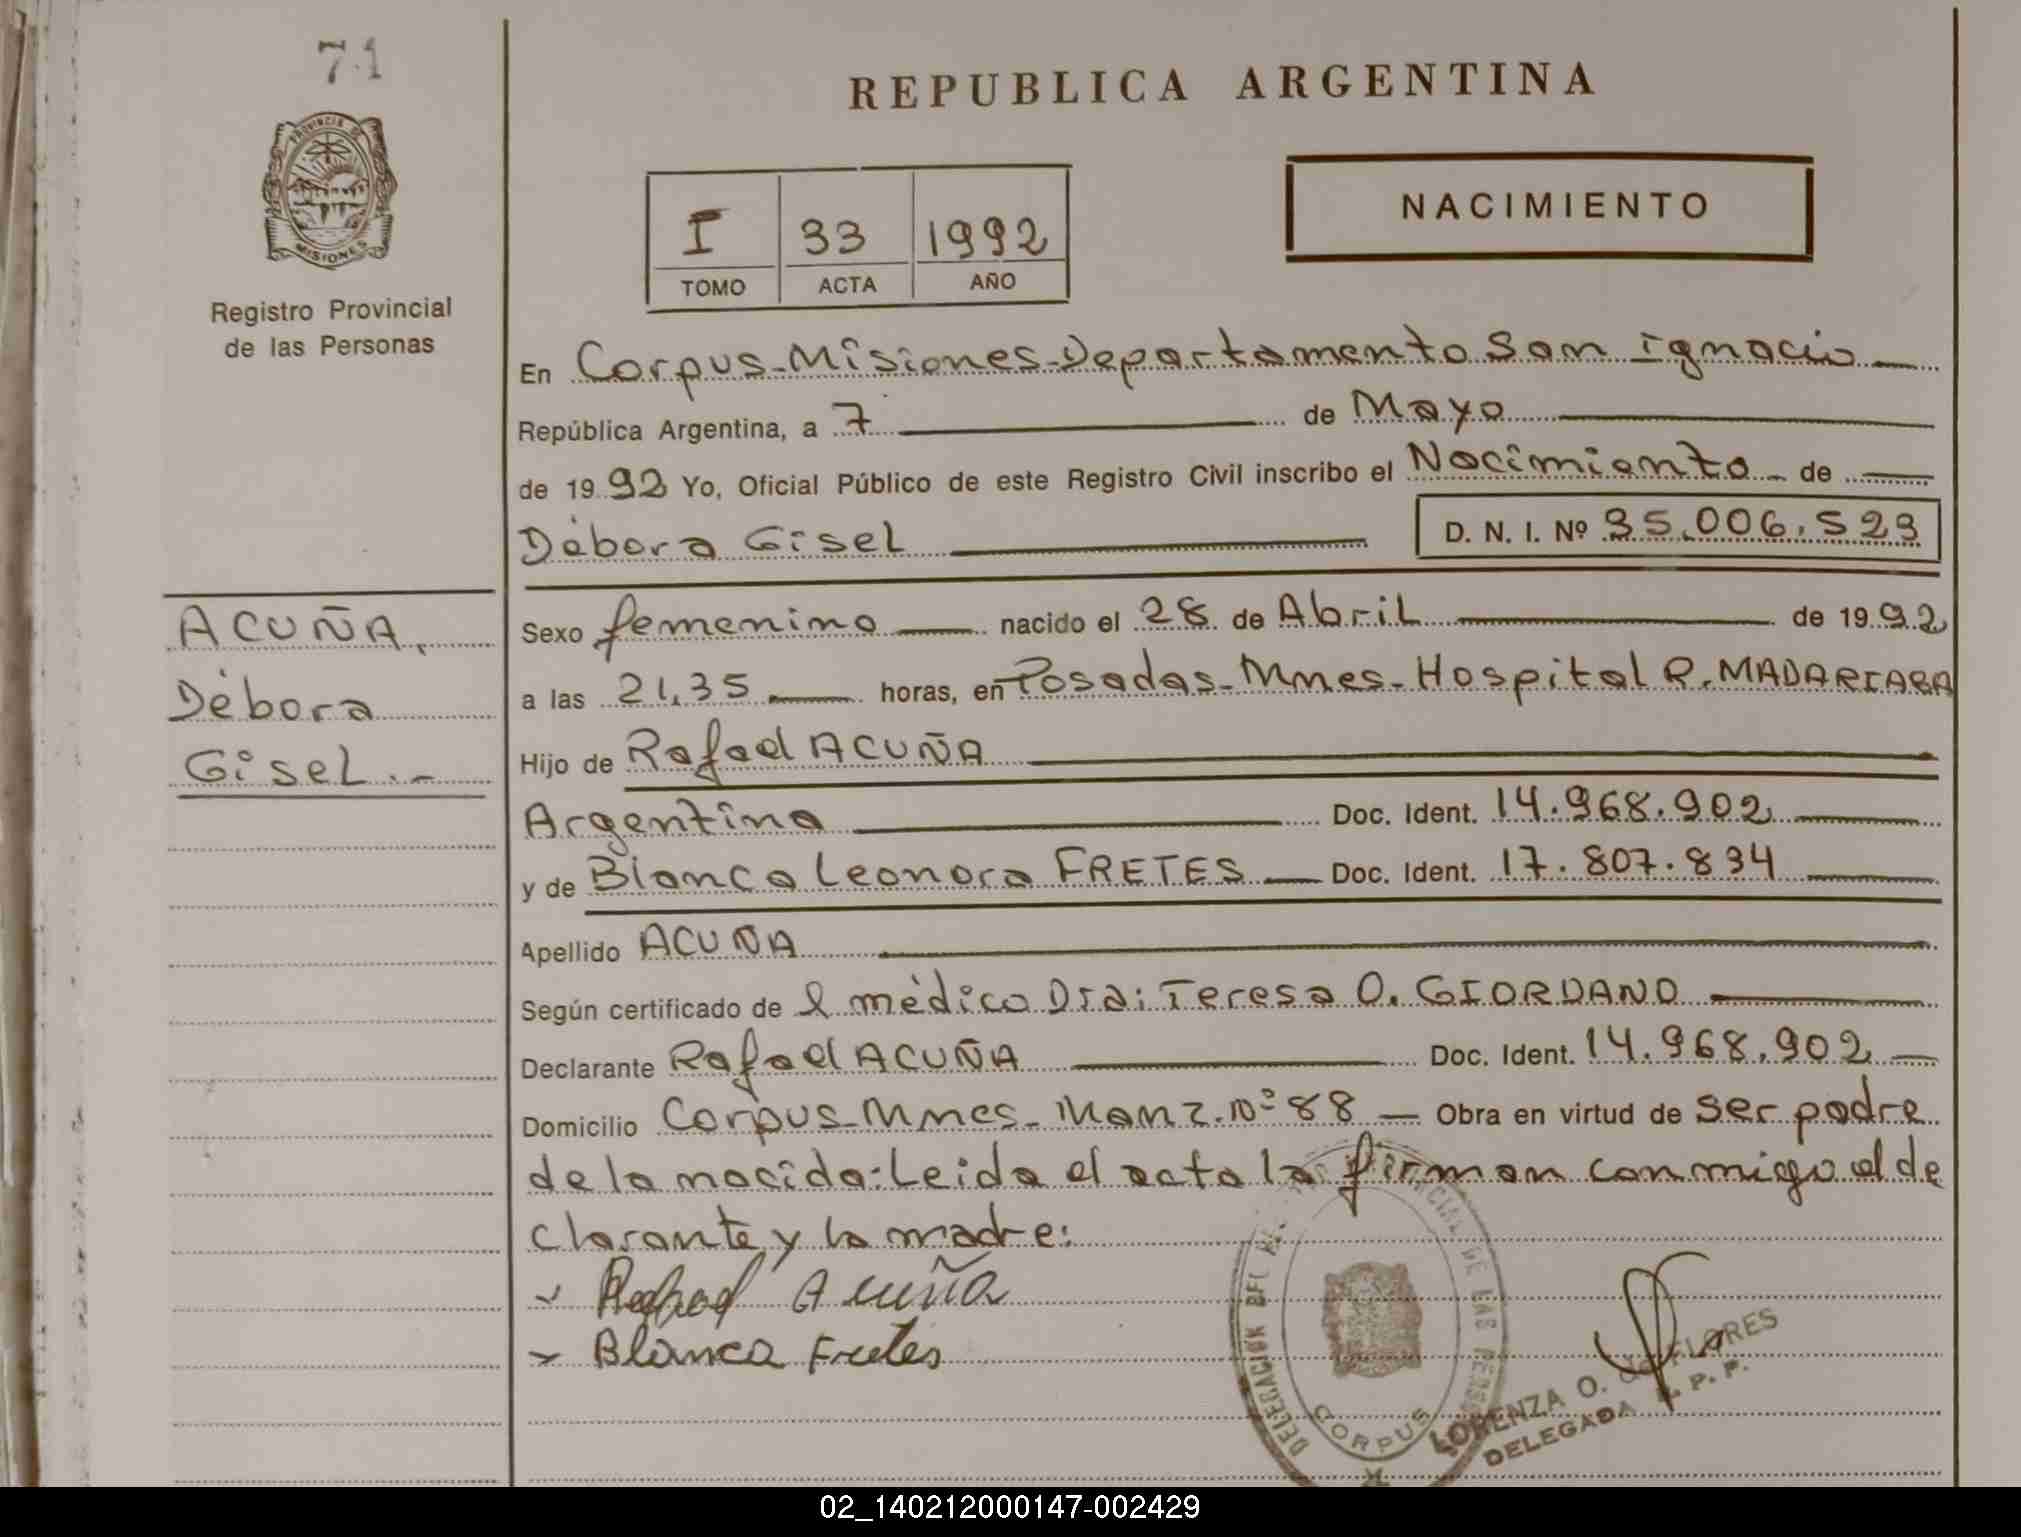 71
PROVINCIA DE
MISIONES
Registro Provincial
de las Personas
REPUBLICA ARGENTINA
I 33 1992
TOMO ACTA AÑO
NACIMIENTO
En Corpus-Misiones-Departamento San Ignacio
República Argentina, a 7 de Mayo
de 1992 Yo, Oficial Público de este Registro Civil inscribo el Nacimiento - de
Débora Gisel
D. N. I. Nº 35.006.529
ACUÑA,
Débora
Gisel.-
Sexo femenino nacido el 28 de Abril de 1992
a las 21,35 horas, en Posadas-Mnes-Hospital R. MADARIAGA
Hijo de Rafael ACUÑA
Argentina Doc. Ident. 14.968.902
y de Blanca Leonora FRETES Doc. Ident. 17.807.834
Apellido ACUÑA
Según certificado de l médico Dra: Teresa O. GIORDANO
Declarante Rafael ACUÑA Doc. Ident. 14.968.902
Domicilio Corpus-Mnes-Manz. Nº 88 - Obra en virtud de ser padre
de la nacida: Leida el acta la firman conmigo el de
clarante y la madre:
Rafael Acuña
Blanca Fretes
DELEGACIÓN DEL PROVINCIAL DE LAS
CORPUS
LORENZA O. de FLORES
DELEGADA R. P. P.
02_140212000147-002429